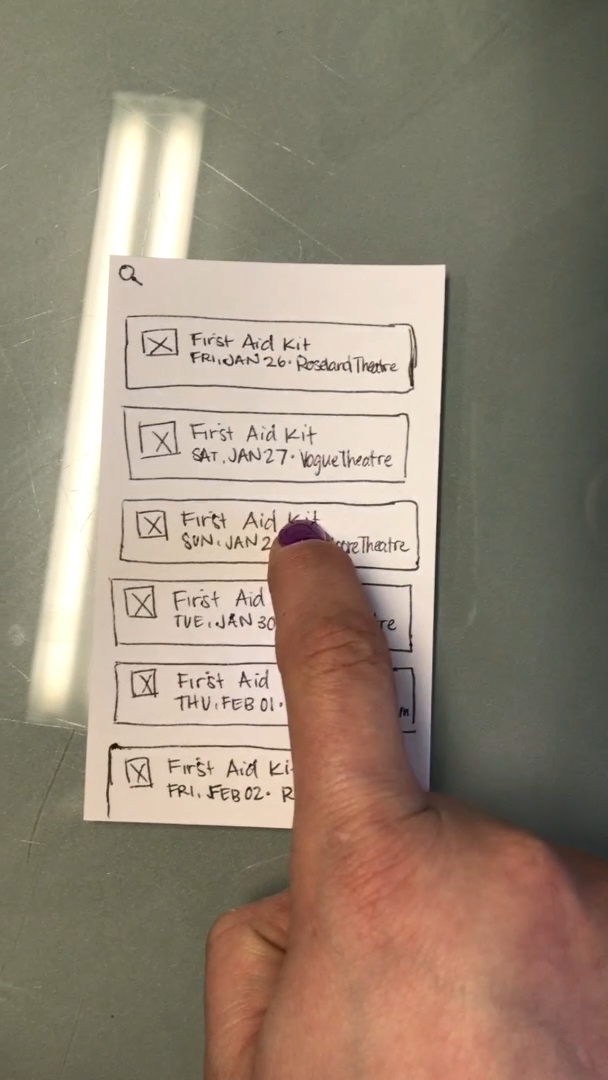 First Aid Kit
FRI, JAN 26 • Roseland Theatre
First Aid Kit
SAT, JAN 27 • Vogue Theatre
First Aid Kit
SUN, JAN Theatre
First Aid
TUE, JAN 30
First Aid
THU, FEB 01 •
First Aid
FRI, FEB 02 •